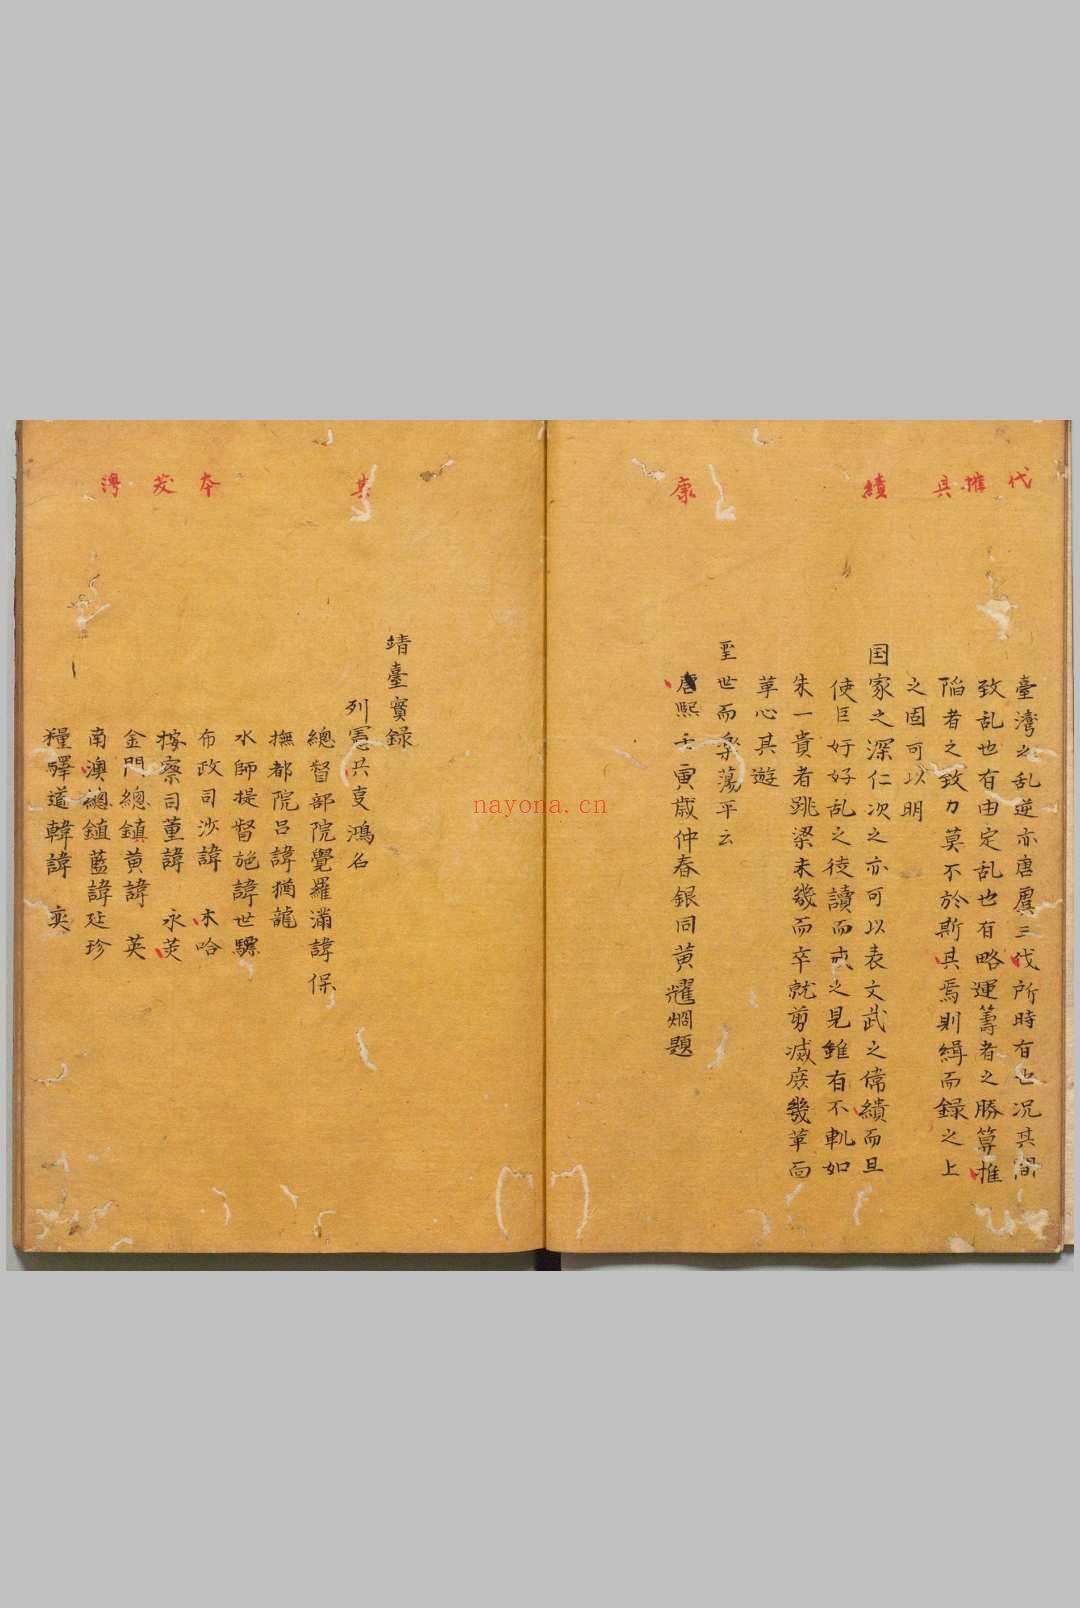 代 摧 具 績 康
臺灣之乱逆亦唐虞三伐所時有也况其間
致乱也有由定乱也有略運籌者之勝筭推
陷者之致力莫不於斯其焉則緝而錄之上
之固可以明
国家之深仁次之亦可以表文武之偉績而且
使巨奸好乱之徒讀而戒之見錐有不軌如
朱一貴者跳梁未幾而卒就剪滅庶幾革面
革心其遊
聖世而樂蕩平云
唐熙壬寅歲仲春銀同黃耀炯題
其 本 茂 灣
靖臺實錄
列憲共事鴻名
總督部院覺羅滿諱保
撫都院呂諱猶龍
水師提督施諱世驃
布政司沙諱 木哈
按察司董諱 永芡
金門總鎮黃諱 英
南澳總鎮藍諱廷珍
糧驛道韓諱 奕
nayona.cn